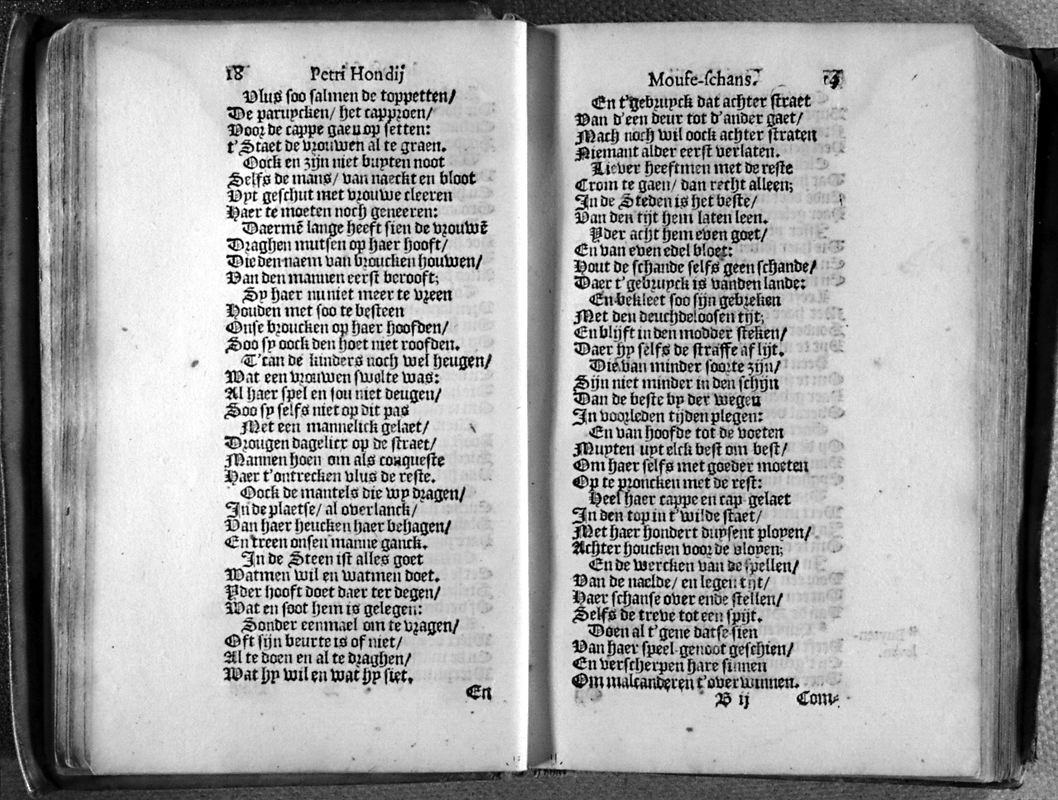 18 Petri Hondij
Vlus soo salmen de toppetten/
De paruycken/ het capproen/
Voor de cappe gaen op setten:
t'Staet de vrouwen al te graen.
Oock en zijn niet buyten noot
Selfs de mans/ van naeckt en bloot
Uyt geschut met vrouwe cleeren
Haer te moeten noch geneeren:
Daermē lange heeft sien de vrouwē
Draghen mutsen op haer hooft/
Die den naem van broucken houwen/
Van den mannen eerst berooft;
Sy haer nu niet meer te vreen
Houden met soo te besteen
Onse broucken op haer hoofden/
Soo sy oock den hoet niet roofden.
T'can de kinders noch wel heugen/
Wat een vrouwen swolte was:
Al haer spel en sou niet deugen/
Soo sy selfs niet op dit pas
Met een mannelick gelaet/
Drougen dagelicx op de straet/
Mannen hoen om als conqueste
Haer t'ontrecken vlus de reste.
Oock de mantels die wy dragen/
In de plaetse/ al overlanck/
Van haer heucken haer behagen/
En treen onsen manne ganck.
In de Steen ist alles goet
Watmen wil en watmen doet.
Yder hooft doet daer ter degen/
Wat en soot hem is gelegen:
Sonder eenmael om te vragen/
Oft sijn beurte is of niet/
Al te doen en al te draghen/
Wat hy wil en wat hy siet.
En
Mouse-schans.
En t'gebruyck dat achter straet
Van d'een deur tot d'ander gaet/
Mach noch wil oock achter straten
Niemant alder eerst verlaten.
Liever heeftmen met de reste
Crom te gaen/ dan recht alleen;
In de Steden is het beste/
Van den tijt hem laten leen.
Yder acht hem even goet/
En van even edel bloet:
Hout de schande selfs geen schande/
Daer t'gebruyck is vanden lande:
En bekleet soo sijn gebreken
Met den deuchdeloosen tijt;
En blijft in den modder steken/
Daer hy selfs de straffe af lijt.
Die van minder soorte zijn/
Sijn niet minder in den schijn
Dan de beste by der wegen
In voorleden tijden plegen:
En van hoofde tot de voeten
Muyten uyt elck best om best/
Om haer selfs met goeder moeten
Op te proncken met de rest:
Heel haer cappe en cap-gelaet
In den top in t'wilde staet/
Met haer hondert duysent ployen/
Achter houcken voor de vloyen;
En de wercken van de spellen/
Van de naelde/ en legen tijt/
Haer schanse over ende stellen/
Selfs de treve tot een spijt.
Doen al t'gene datse sien
Van haer speel-genoot geschien/
En verscherpen hare sinnen
Om malcanderen t'overwinnen.
B ij Com-